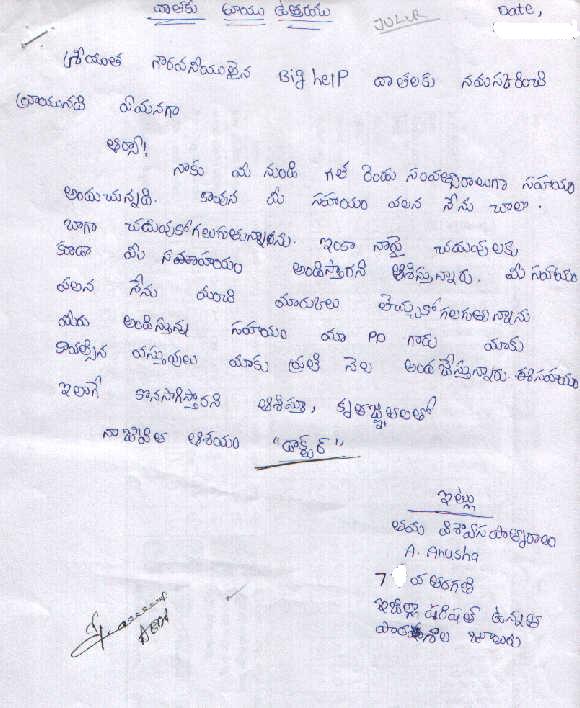 దాతకు వ్రాయు ఉత్తరము
JULIE
Date,
శ్రీయుత గౌరవనీయులైన Big help దాతలకు నమస్కరించి
వ్రాయునది ఏమనగా
అయ్యా!
నాకు మీ నుండి గత రెండు సంవత్సరాలుగా సహాయం
అందుచున్నది. కావున మీ సహాయం వలన నేను చాలా
బాగా చదువుకోగలుగుతున్నాను. ఇంకా నాపై చదువులకు
కూడా మీ సహాయం అందిస్తారని ఆశిస్తున్నాను. మీ సహాయం
వలన నేను మంచి మార్కులు తెచ్చుకోగలుగుతున్నాను
మీరు అందిస్తున్న సహాయం మా PO గారు మాకు
కావలసిన వస్తువులు మాకు ప్రతి నెల అందజేస్తున్నారు. ఈ సహాయం
ఇలాగే కొనసాగిస్తారని ఆశిస్తూ, కృతజ్ఞతలతో
నా జీవిత ఆశయం "డాక్టర్"
ఇట్లు
తమ విశ్వాసపాత్రురాలు
A. Anusha
7 వ తరగతి
జిల్లా పరిషత్ ఉన్నత
పాఠశాల